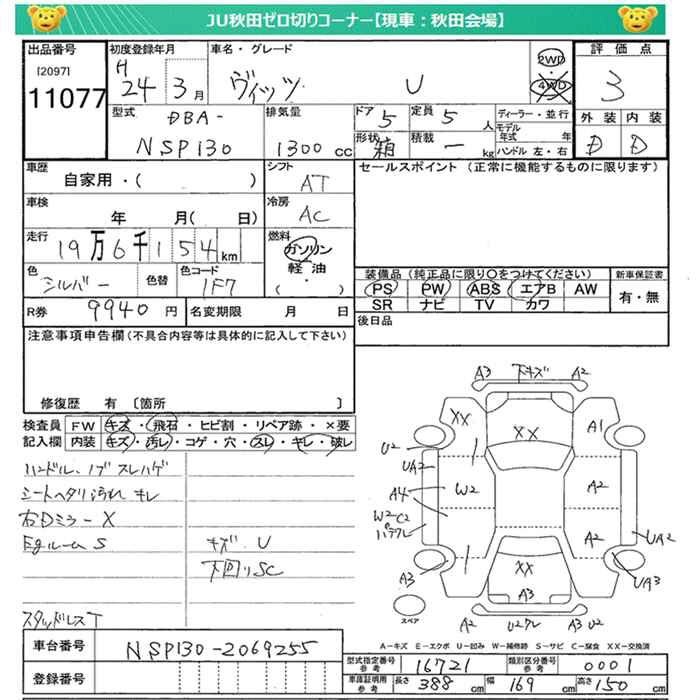 JU秋田ゼロ切りコーナー【現車：秋田会場】
出品番号
[2097]
11077
初度登録年月
H
24年3月
車名・グレード
ヴィッツ U
2WD
・
4WD
評価点
3
外装 内装
D D
型式
DBA-
NSP130
排気量
1300cc
ドア 5
定員 5人
形状 箱
積載 ー kg
ディーラー・並行
モデル年式 年
ハンドル 左・右
車歴
自家用・( )
シフト
AT
セールスポイント (正常に機能するものに限ります)
車検
年 月( 日)
冷房
AC
走行
19万6千154km
燃料
ガソリン
軽油
・
( )
色
シルバー
色替
色コード
1F7
装備品(純正品に限り〇をつけてください)
PS PW ABS エアB AW
SR ナビ TV カワ
新車保証書
有・無
R券 9940円
名変期限 月 日
後日品
注意事項申告欄(不具合内容等は具体的に記入して下さい)
修復歴 有 〔箇所 〕
検査員記入欄
FW キズ・飛石・ヒビ割・リペア跡・×要
内装 キズ・汚レ・コゲ・穴・スレ・キレ・破レ
ハンドル、ノブ スレハゲ
シートヘタリ汚れ キレ
右Dミラー X
Egルーム S
キズ、U
下回りSC
スタッドレスT
A3 下キズ A2
XX
XX
A1
U2
UA2
A4
W2
A2
W2-C2
ハラワレ
A2
UA2
A3
XX
A3
UA3
U2ワレ
A3 U2
スペア
A－キズ E－エクボ U－凹み W－補修跡 S－サビ C－腐食 XX－交換済
車台番号
NSP130-2069255
登録番号
型式指定番号
参考
16721
類別区分番号
参考
0001
車庫証明用
参考
長さ 388cm
幅 169cm
高さ 150cm